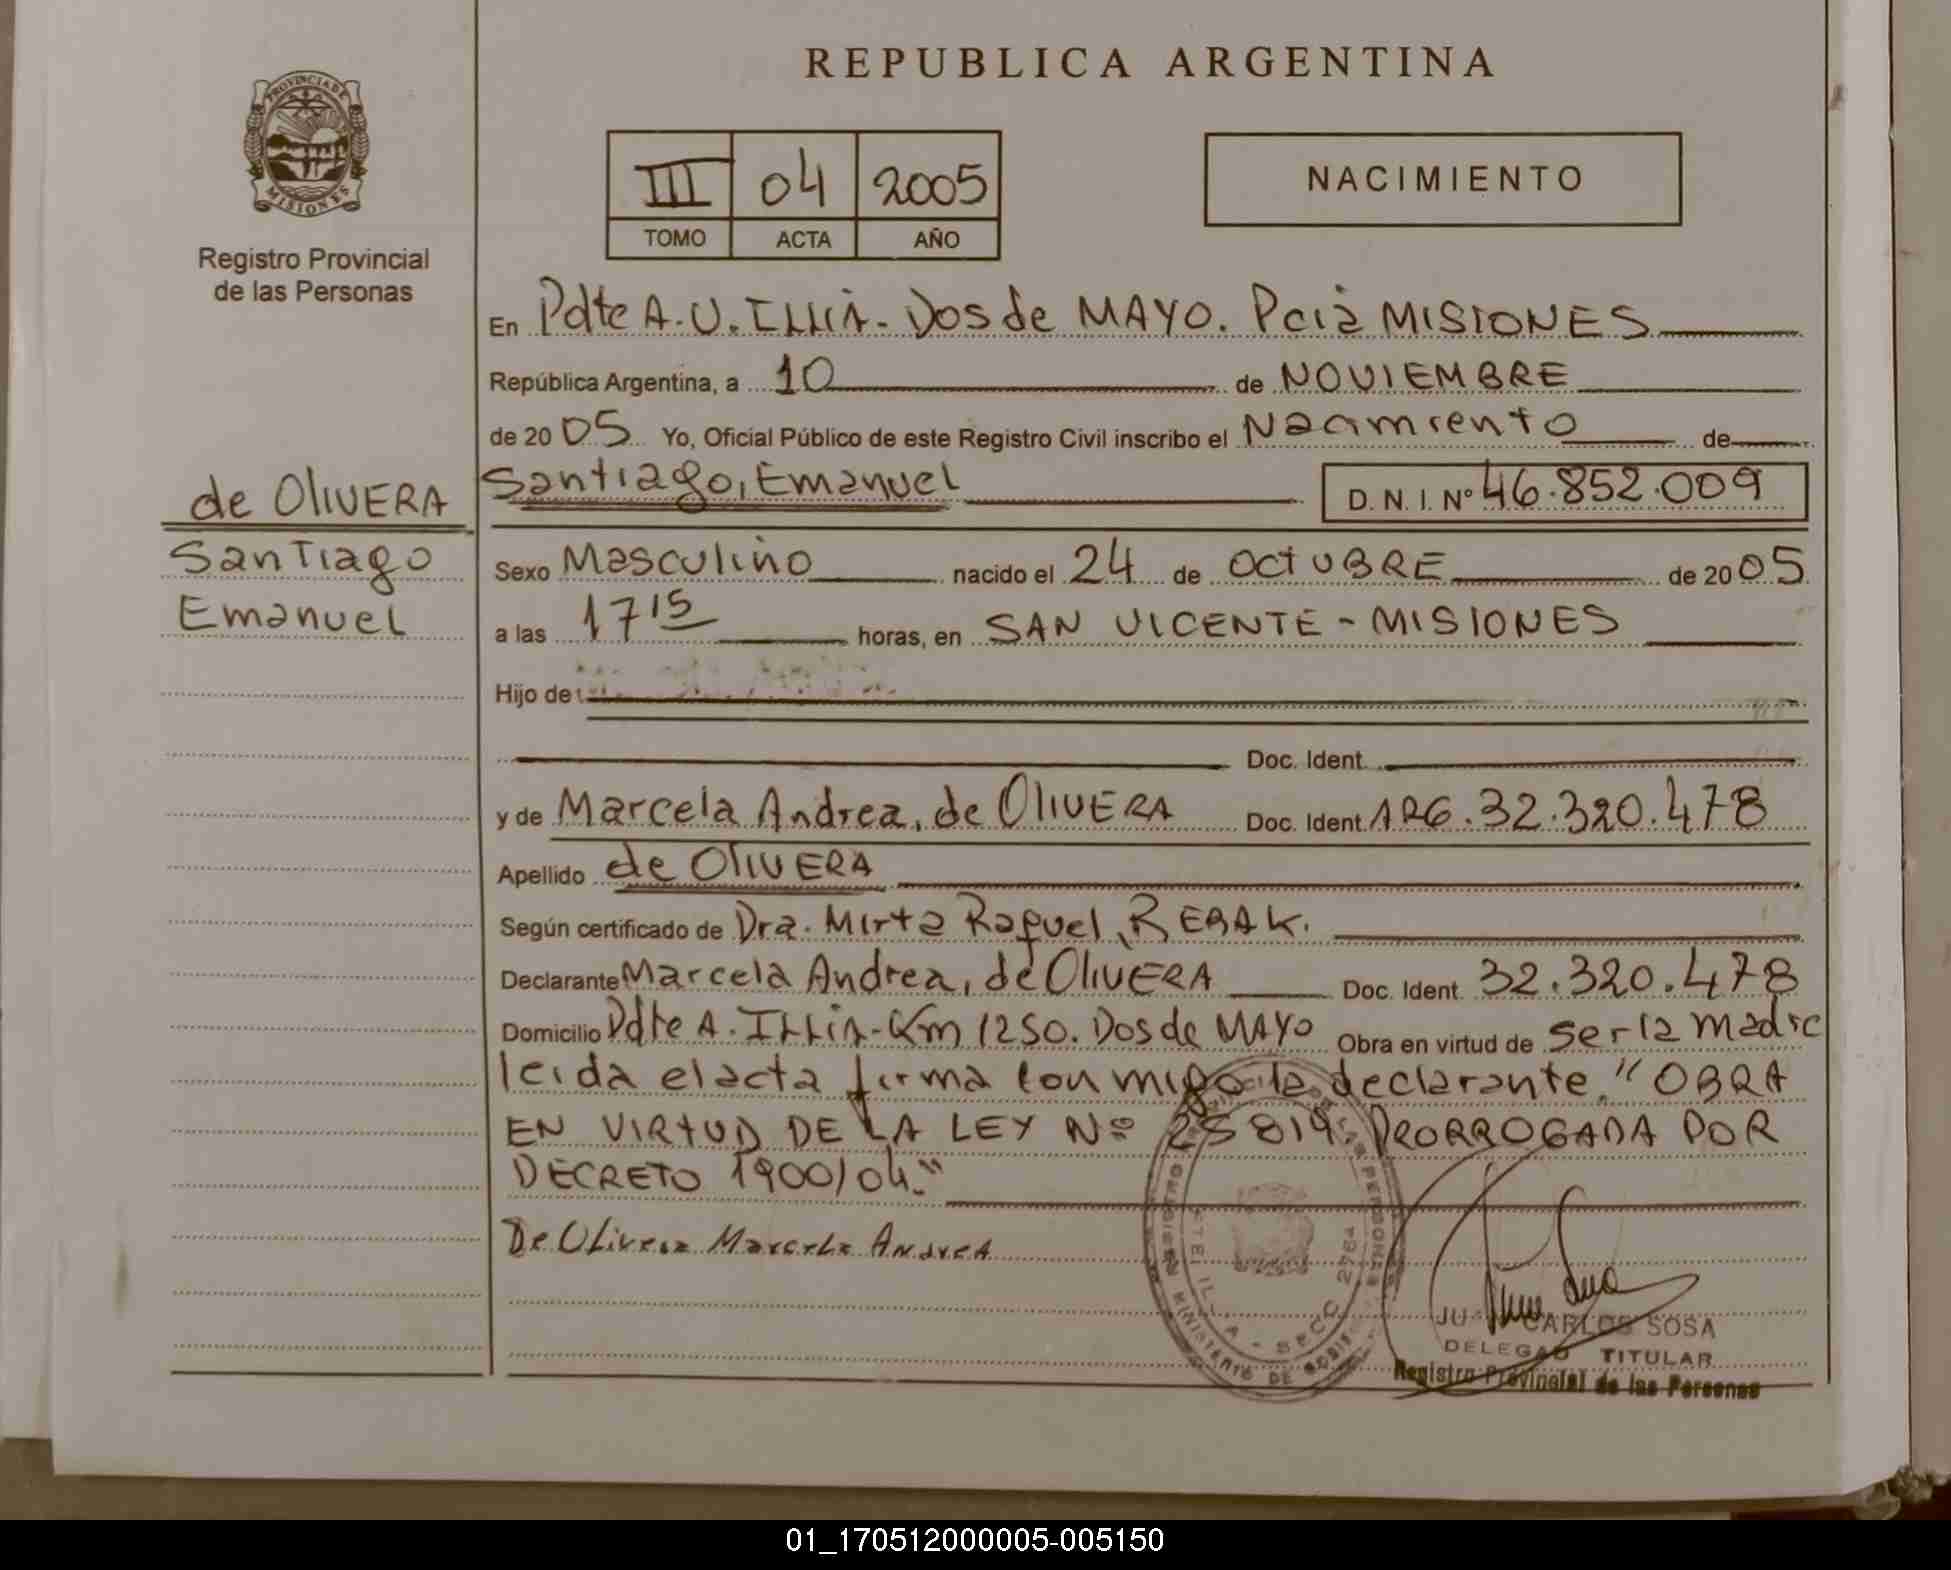 REPUBLICA ARGENTINA
PROVINCIA DE MISIONES
Registro Provincial
de las Personas
III 04 2005
TOMO ACTA AÑO
NACIMIENTO
En Pdte A. U. ILLIA. Dos de MAYO. Pcia MISIONES
República Argentina, a 10 de NOVIEMBRE
de 2005 Yo, Oficial Público de este Registro Civil inscribo el Nacimiento de
de OLIVERA
Santiago
Emanuel
Santiago, Emanuel D. N. I. Nº 46.852.009
Sexo Masculino nacido el 24 de OCTUBRE de 2005
a las 17 15 horas, en SAN VICENTE - MISIONES
Hijo de
Doc. Ident.
y de Marcela Andrea, de OLIVERA Doc. Ident. ARG. 32.320.478
Apellido de OLIVERA
Según certificado de Dra. Mirta Raquel, REBAK.
Declarante Marcela Andrea, de OLIVERA Doc. Ident. 32.320.478
Domicilio Pdte A. ILLIA - Km 1250. Dos de MAYO Obra en virtud de ser la madre
leida el acta firma con migo la declarante. "OBRA
EN VIRTUD DE LA LEY Nº 25819. PRORROGADA POR
DECRETO 1900/04."
De OLivera Marcela Andrea
JUAN CARLOS SOSA
DELEGADO TITULAR
Registro Provincial de las Personas
01_170512000005-005150